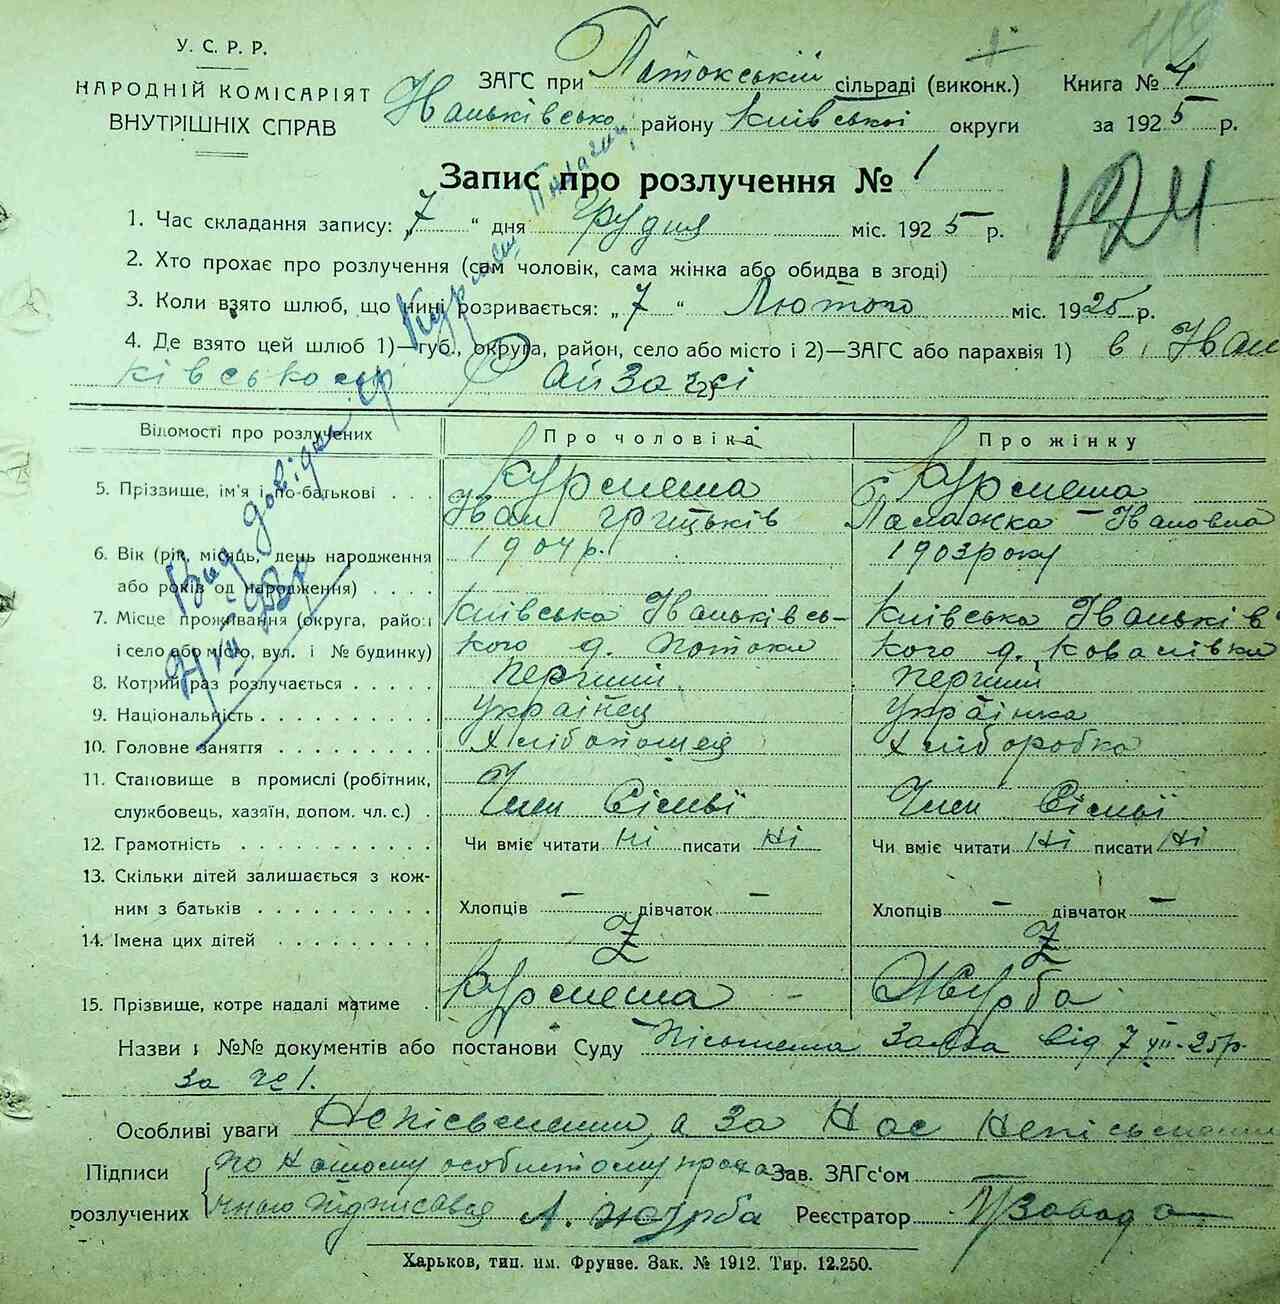 У. С. Р. Р.
НАРОДНІЙ КОМІСАРІЯТ
ВНУТРІШНІХ СПРАВ
ЗАГС при Потокській сільраді (виконк.) Книга № 4
Іваньківсько району Київської округи за 1925 р.
Запис про розлучення № 1
124
1. Час складання запису: „7“ дня Грудня міс. 1925 р.
2. Хто прохає про розлучення (сам чоловік, сама жінка або обидва в згоді)
3. Коли взято шлюб, що нині розривається: „7“ Лютого міс. 1925 р.
4. Де взято цей шлюб 1)—губ., округа, район, село або місто і 2)—ЗАГС або парахвія 1) в Іван
ківському Райзагсі 2)
Відомості про розлучених Про чоловіка Про жінку
5. Прізвище, ім'я і по-батькові . . . Курмеша Курмеша
Іван Грицьків Палажка - Івановна
6. Вік (рік, місяць, день народження 1904 р. 1903 року
або років од народження) . . . .
7. Місце проживання (округа, район Київська Іваньківсь- Київська Іваньків
і село або місто, вул. і № будинку) кого д. Потоки кого д. Ковалівка
8. Котрий раз розлучається . . . . . Перший Перший
9. Національність . . . . . . . . . . Українец Українка
10. Головне заняття . . . . . . . . . Хліборобка
11. Становище в промислі (робітник,
службовець, хазяїн, допом. чл. с.) . Член Сімьї Член Сімьї
12. Грамотність . . . . . . . . . . . Чи вміє читати Ні писати Ні Чи вміє читати Ні писати Ні
13. Скільки дітей залишається з кож-
ним з батьків . . . . . . . . . . Хлопців — дівчаток — Хлопців — дівчаток —
14. Імена цих дітей . . . . . . . . . Z Z
15. Прізвище, котре надалі матиме . Курмеша - Журба
Назви і №№ документів або постанови Суду Пісьмена Заява від 7 XII-25р.
за № 1.
Особливі уваги Непісьменни, а за Нас Непісьменни
Підписи по Нашому особистому проха Зав. ЗАГС'ом
розлучених А. Журба Реєстратор
Харьков, тип. им. Фрунзе. Зак. № 1912. Тир. 12.250.